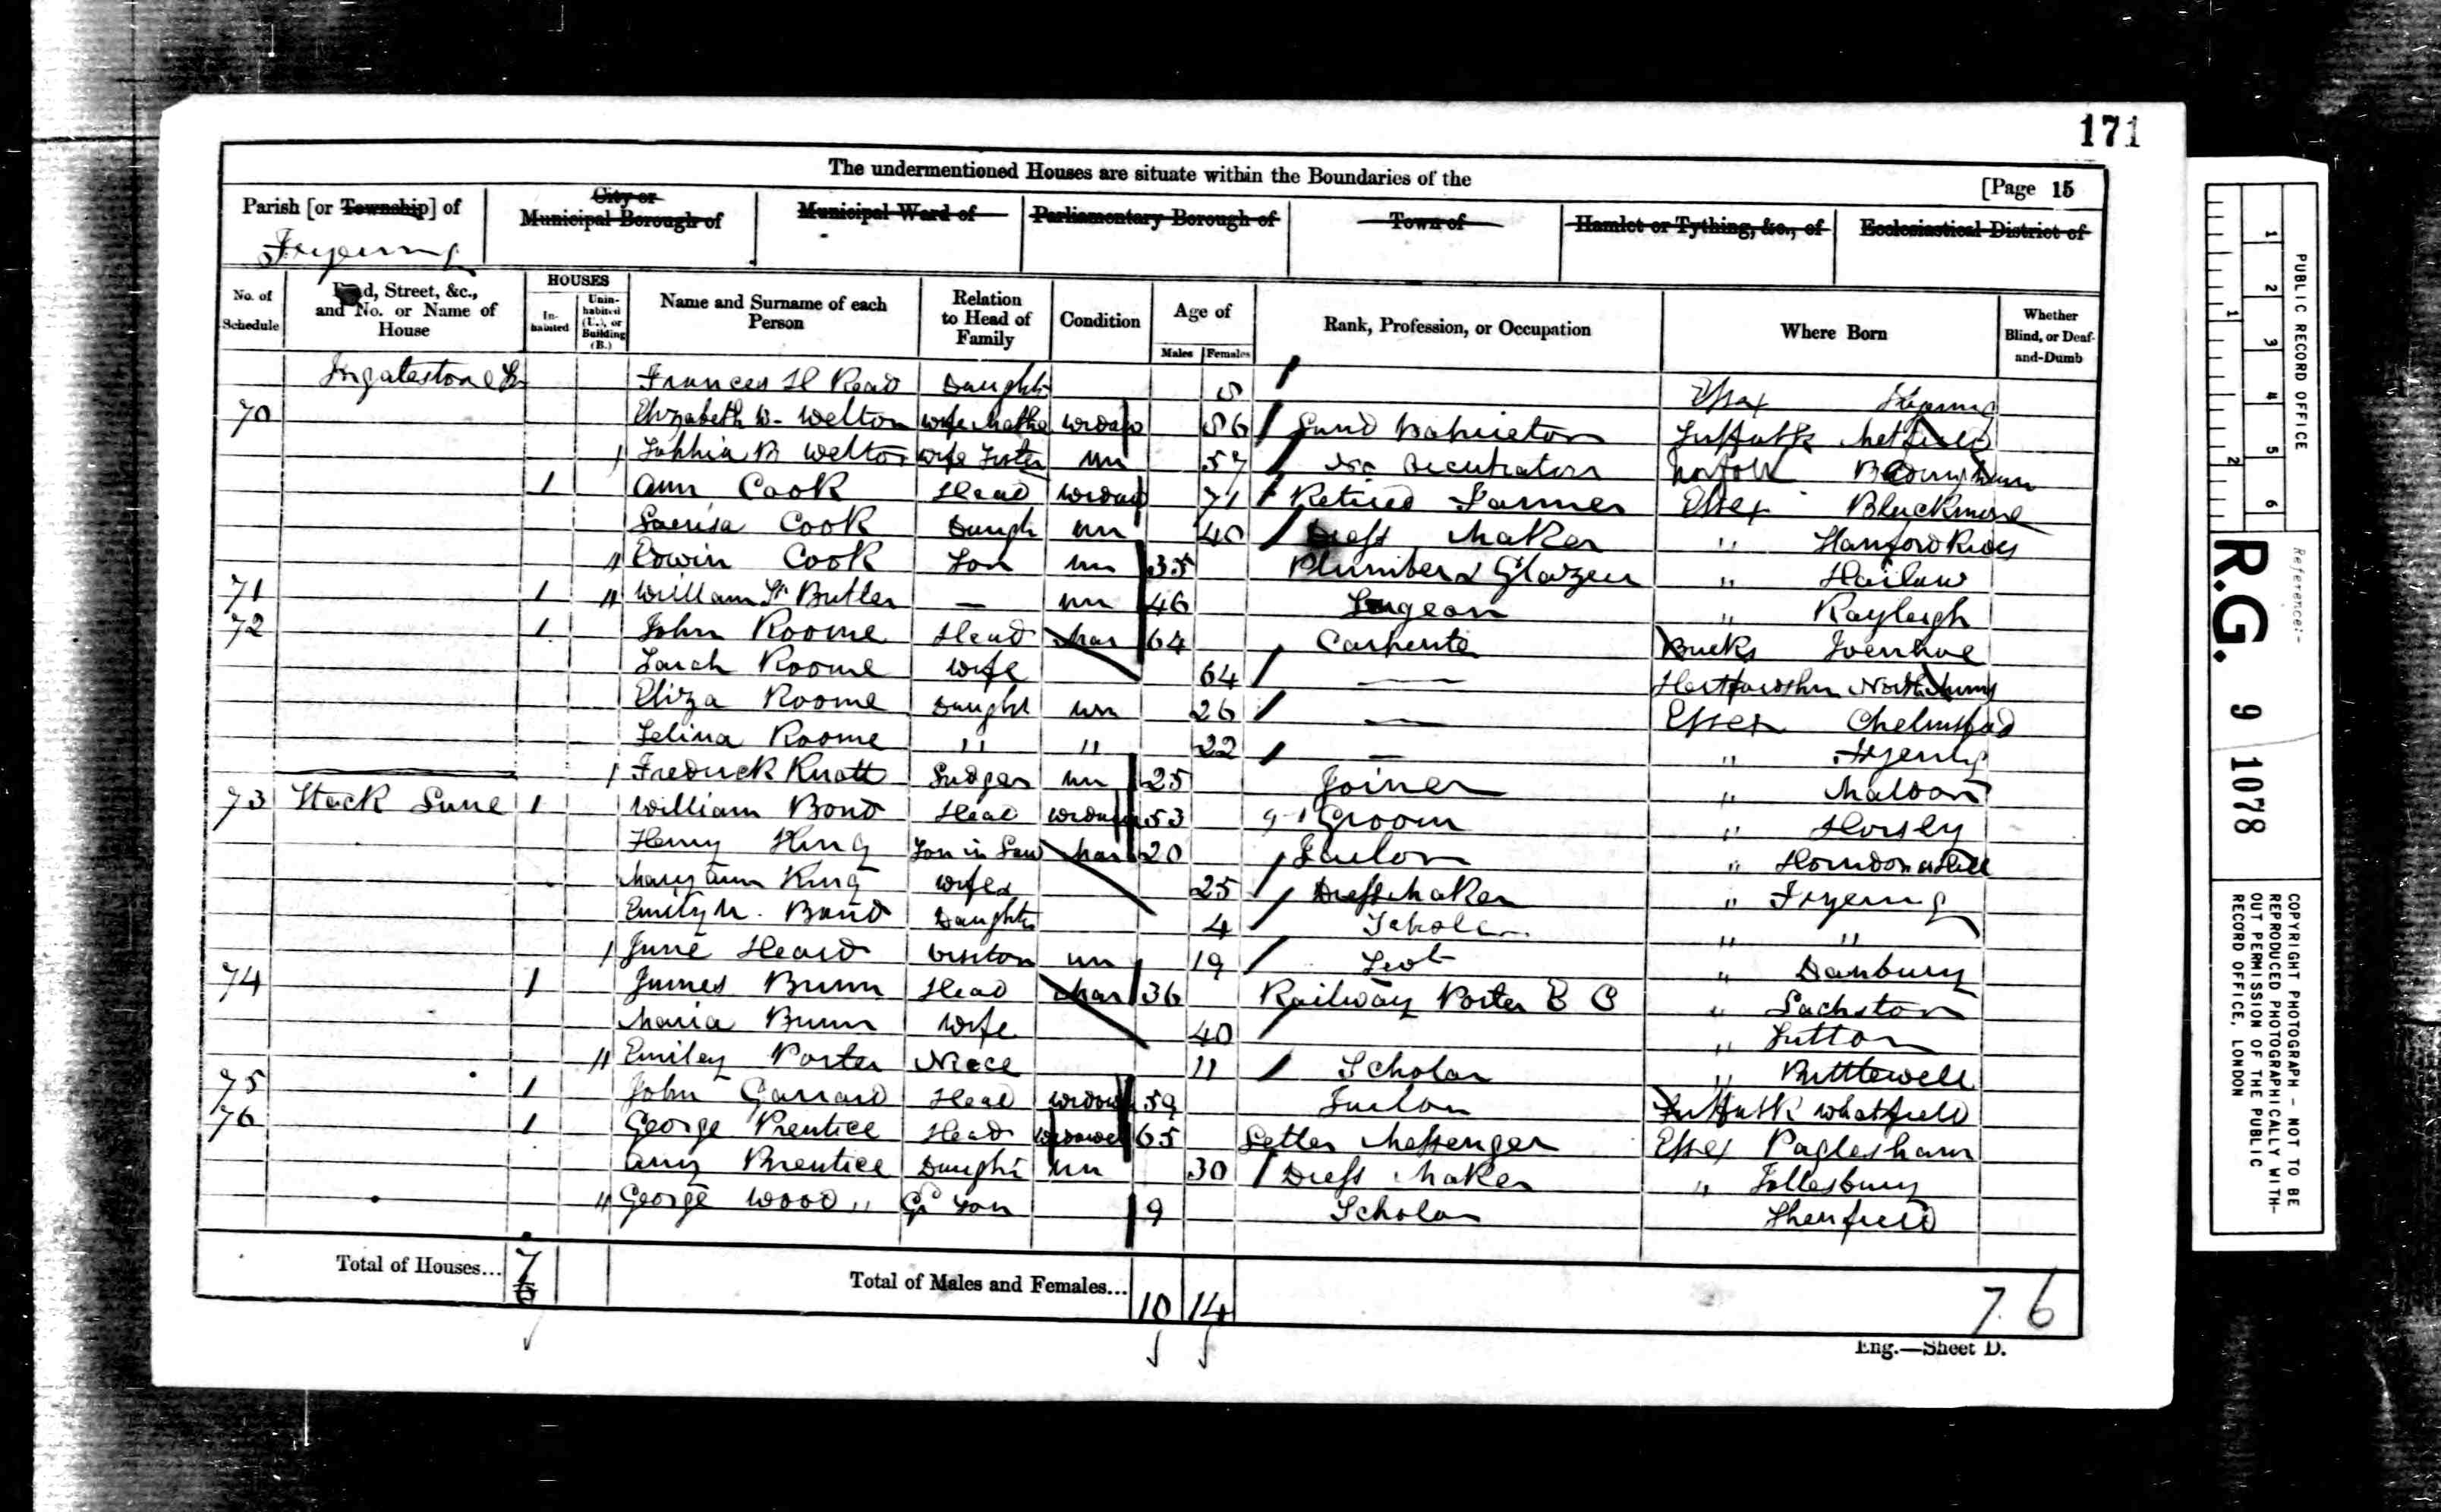 171
The undermentioned Houses are situate within the Boundaries of the
[Page 15
Parish [or Township] of
City or Municipal Borough of
Municipal Ward of
Parliamentary Borough of
Town of
Hamlet or Tything, &c., of
Ecclesiastical District of
Fryerning
No. of Schedule
Road, Street, &c., and No. or Name of House
HOUSES
In-habited
Unin-habited (U.), or Building (B.)
Name and Surname of each Person
Relation to Head of Family
Condition
Age of
Males
Females
Rank, Profession, or Occupation
Where Born
Whether Blind, or Deaf-and-Dumb
Ingatestone Frances H Read Daughtr Essex Fryerning
70 Elizabeth W. Welton wife Mother widow 86 Suffolk Metfield
Sophia B Welton wife Sister un 57 No Occupation Norfolk
1 Ann Cook Head widow 71 Retired Farmer Essex Blackmore
Cook Daugh un 40 Dress Maker " Stanford Rivers
Edwin Cook Son un 35 Plumber & Glazier " Harlow
71 1 William Butler — un 46 Surgeon " Rayleigh
72 1 John Roome Head Mar 64 Carpenter Bucks Ivenhoe
Sarah Roome wife 64 — Hertfordshr North Mims
Eliza Roome Daught un 26 — Essex Chelmsford
Selina Roome " " 22 — " Fryerning
Fredrick Knott Lodger un 25 Joiner " Maldon
73 Stock Lane 1 William Bond Head widower 53 Groom " Horsly
Henry King Son in Law Mar 20 Tailor " Horndon Hill
Mary Ann King wife 25 Dress Maker " Fryerning
Emily M. Bond Daughtr 4 Scholar " "
Jane Heard Visitor un 19 " Danbury
74 1 James Bunn Head Mar 36 Railway Porter E C "
Maria Bunn Wife 40 " Sutton
Emiley Porter Niece 11 Scholar " Prittlewell
75 1 John Garrard Head widower 59 Tailor Suffolk Whatfield
76 1 George Prentice Head widower 65 Letter Messenger Essex Paglesham
Amy Prentice Daught un 30 Dress Maker " Tollesbury
George Wood " Gd Son 9 Scholar Shenfield
Total of Houses... 7
Total of Males and Females... 10 14
7 6
Eng.—Sheet D.
PUBLIC RECORD OFFICE
1 2 3 4 5 6
1 2
Reference:-
R.G. 9 1078
COPYRIGHT PHOTOGRAPH - NOT TO BE
REPRODUCED PHOTOGRAPHICALLY WITH-
OUT PERMISSION OF THE PUBLIC
RECORD OFFICE, LONDON